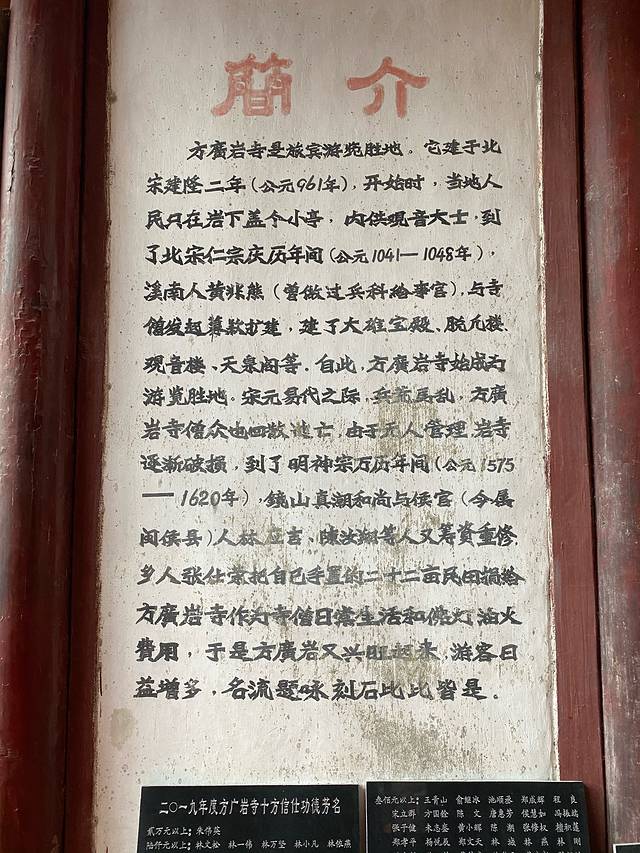 簡介
方廣岩寺是旅宾游览胜地。它建于北
宋建隆二年(公元961年),开始时,当地人
民只在岩下盖个小亭,内供观音大士,到
了北宋仁宗庆历年间(公元1041—1048年),
溪南人黄兆熊(曾做过兵科给事官),与寺
僧发起募款扩建,建了大雄宝殿、脱凡楼、
观音楼、天泉阁等.自此,方廣岩寺始成为
游览胜地。宋元易代之际,兵荒馬乱,方廣
岩寺僧众也四散逃亡,由于无人管理,岩寺
逐渐破损,到了明神宗万历年间(公元1575
—1620年),鏡山真潮和尚与侯官(今属
闽侯县)人林 言、陳汝翔等人又筹資重修
乡人张仕 把自己手置的二十二亩民田捐给
方廣岩寺作为寺僧日常生活和佛灯油火
費用,于是方廣岩又兴旺起来,游客日
益增多,名流题咏刻石比比皆是.
二〇一九年度方广岩寺十方信仕功德芳名
贰万元以上:朱伟英
陆仟元以上:林文松 林一伟 林万坚 林小凡 林依燕
叁佰元以上:王青山 俞继冰 池顺丞 郑成辉 程良
宋立群 方国栓 陈文 唐惠芳 侯慧如 冯振端
张子健 朱志鉴 黄小辉 陈潮 张修权 檀积莲
郑孝平 杨悦辰 郑文天 林城 林燕 林刚